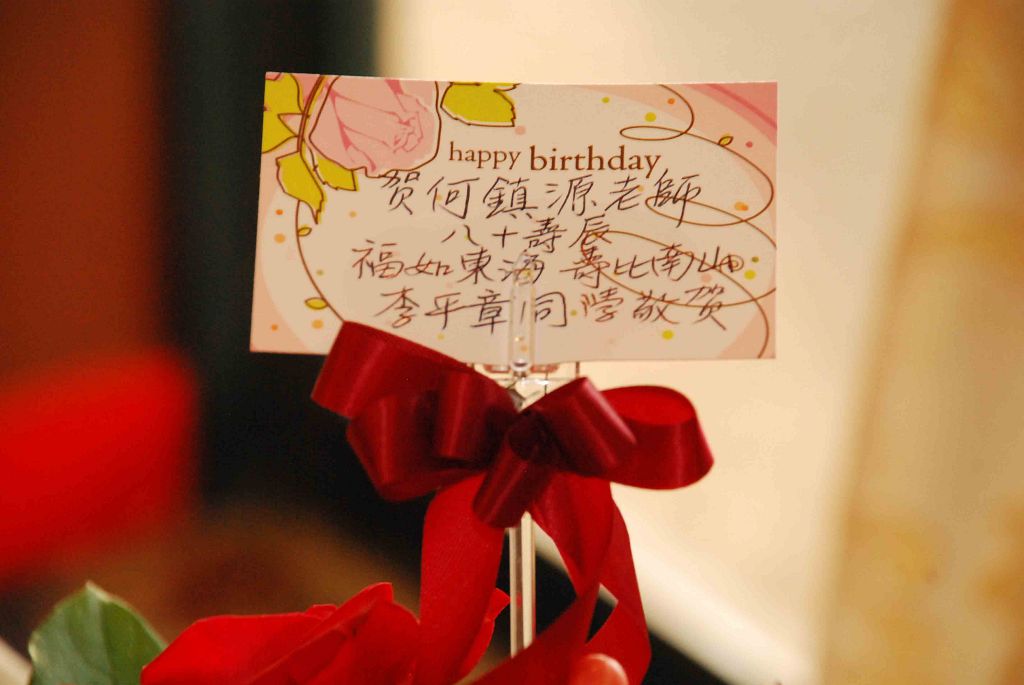 happy birthday
贺何鎮源老師
八十壽辰
福如東海 壽比南山
李平章同 敬贺